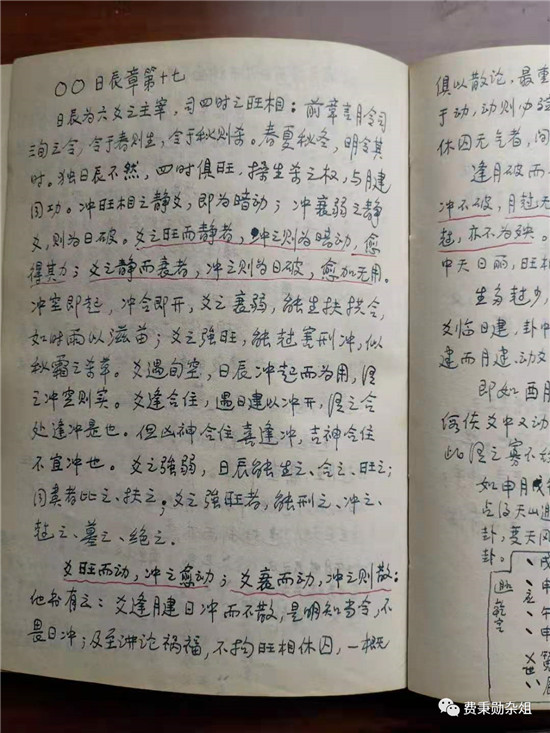 〇〇日辰章第十七
日辰为六爻之主宰，司四时之旺相：前章言月令司
三旬之令，令于春则生，令于秋则杀。春夏秋冬，明令其
时。独日辰不然，四时俱旺，操生杀之权，与月建
同功。冲旺相之静爻，即为暗动；冲衰弱之静
爻，则为日破。爻之旺而静者，冲之则为暗动，愈
得其力；爻之静而衰者，冲之则为日破，愈加无用。
冲空即起，冲合即开，爻之衰弱，能生扶拱合，
如时雨以滋苗；爻之强旺，能尅害刑冲，似
秋霜之杀草。爻遇旬空，日辰冲起而为用，谓
之冲空则实。爻逢合住，遇日建以冲开，谓之合
处逢冲是也。但凶神合住喜逢冲，吉神合住
不宜冲也。爻之强弱，日辰能生之、合之、旺之；
同类者比之、扶之；爻之强旺者，能刑之、冲之、
尅之、墓之、绝之。
爻旺而动，冲之愈动；爻衰而动，冲之则散：
他书有之：爻逢月建日冲而不散，是明知当令，不
畏日冲；及至讲论祸福，不拘旺相休囚，一概
俱以散论，最重
于动，动则
休囚无气者，间
逢月破而
冲不破，月尅
尅，亦不为殃。
中天日丽，旺相
生多尅少，
爻临日建，卦中
建而月建、动爻
即如酉月
何佚爻中又动
此谓之寡不
如申月戌
占得天山遯
卦，变天风
卦。
费秉勋杂俎